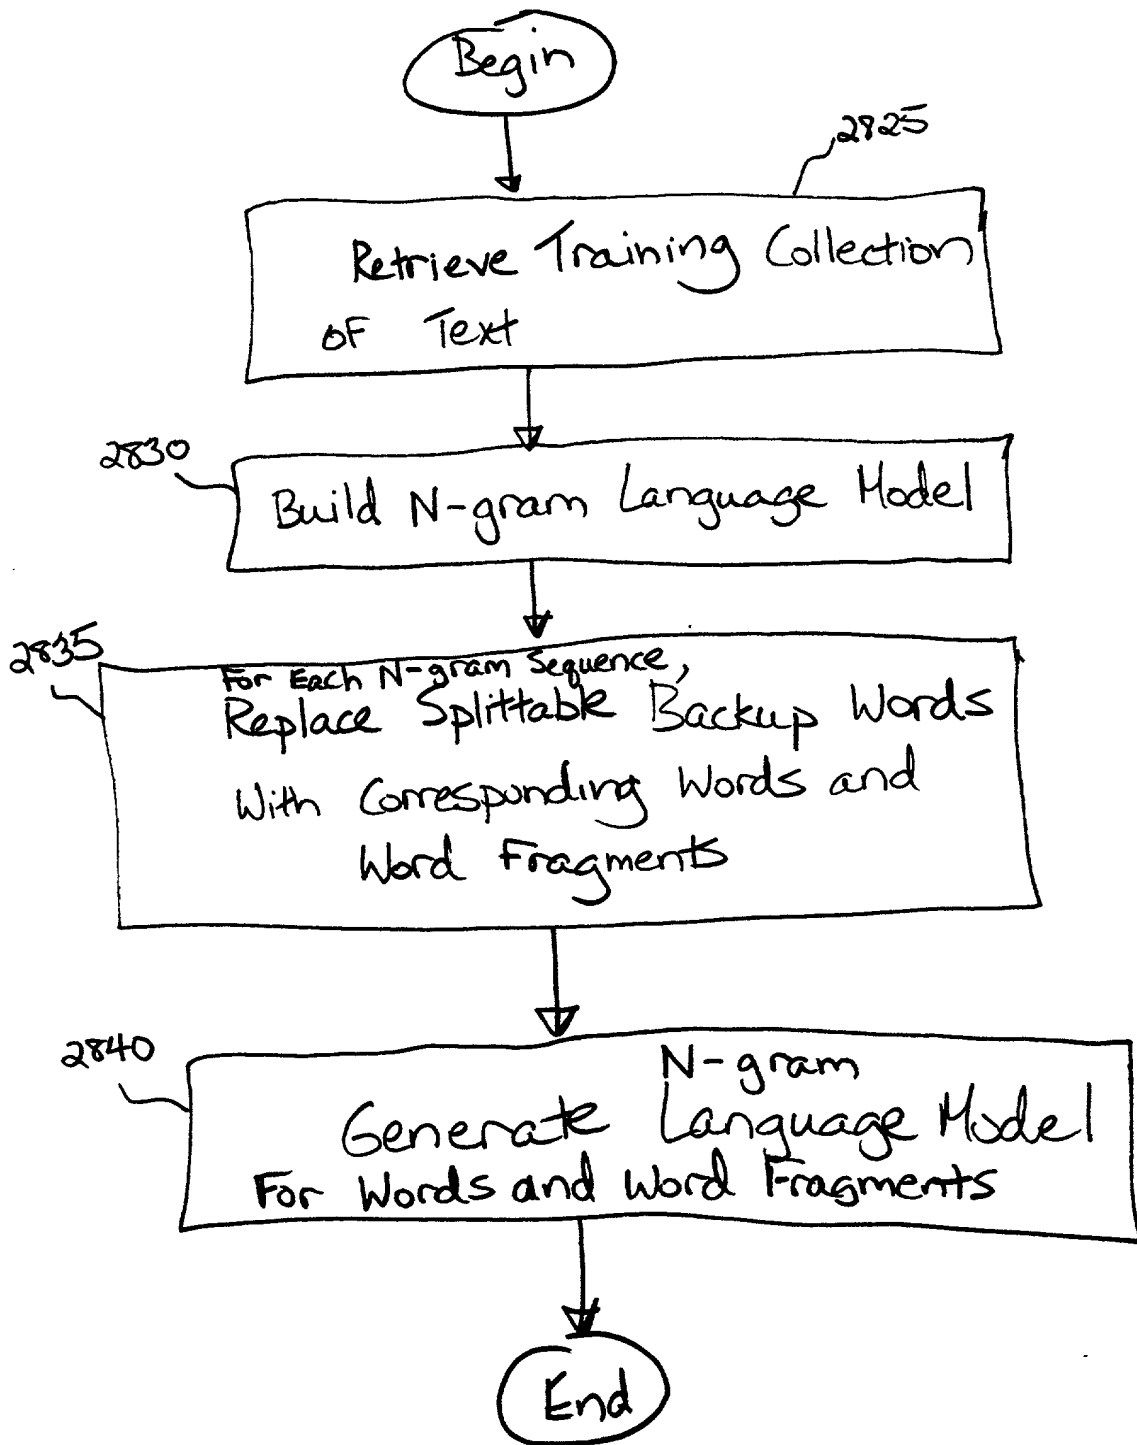 Begin
2825
Retrieve Training Collection
of Text
2830
Build N-gram Language Model
2835
For Each N-gram Sequence,
Replace Splittable Backup Words
With Corresponding Words and
Word Fragments
2840
N-gram
Generate Language Model
For Words and Word Fragments
End